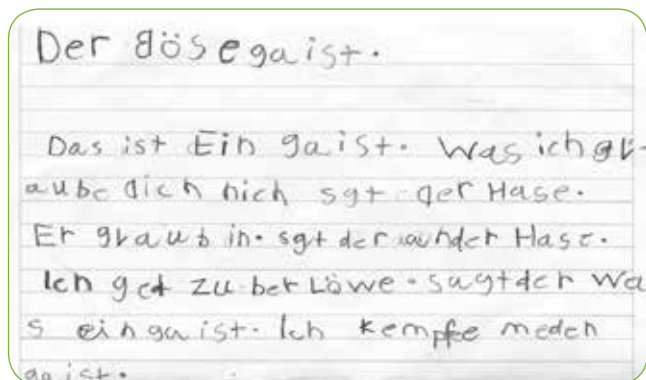 Der Bösegaist.
Das ist Ein gaist. Was ich gl-
aube dich nich sgt der Hase.
Er glaub in. sgt der ander Hase.
Ich get zu ber Löwe. sagt der Wa
s ein gaist. Ich kempfe meden
gaist.